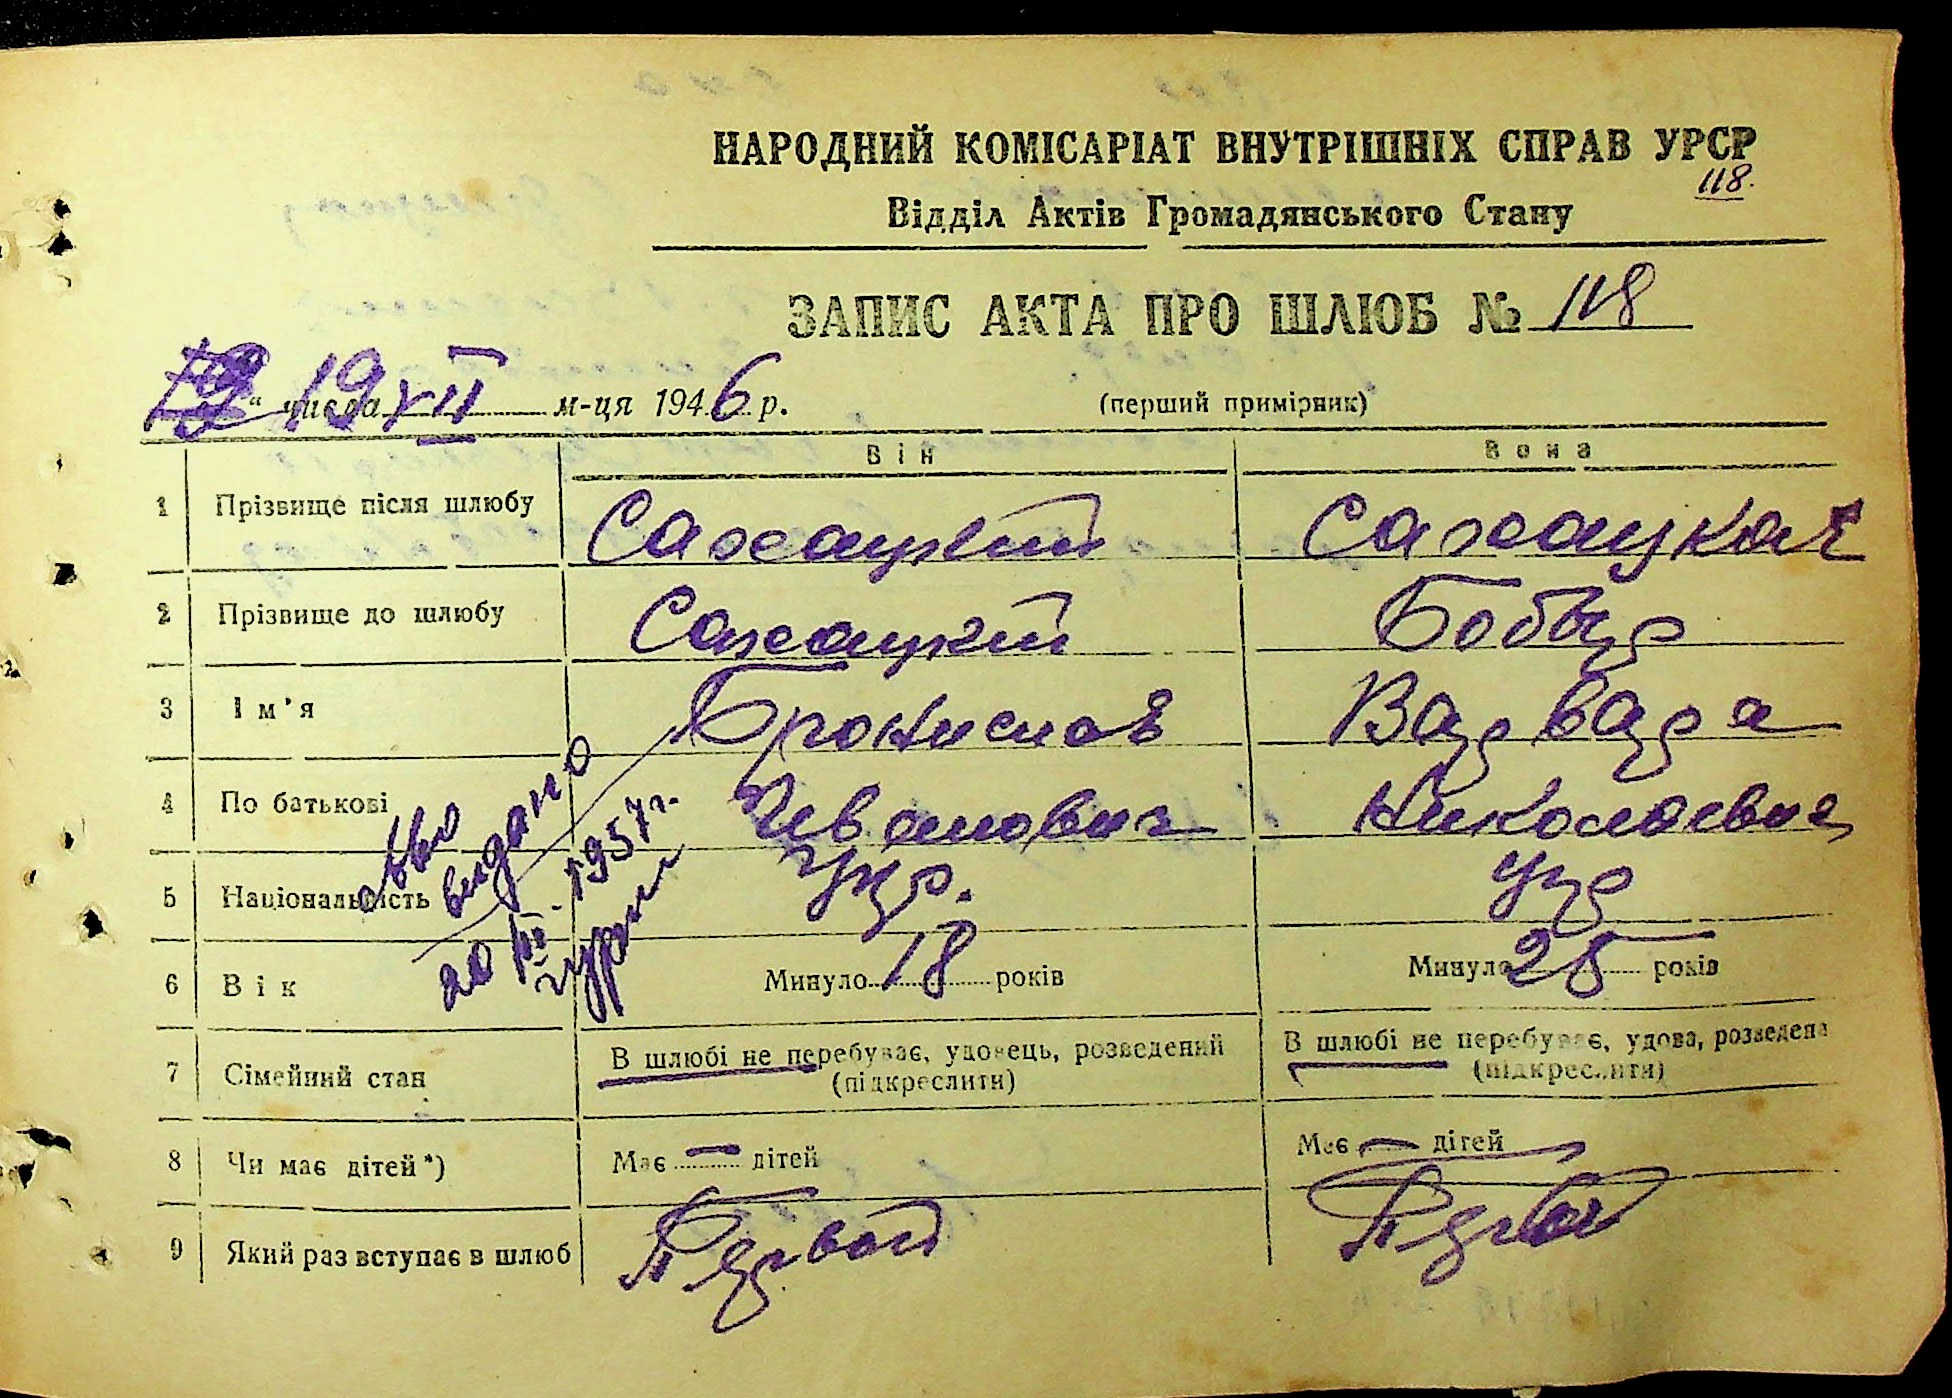 НАРОДНИЙ КОМІСАРІАТ ВНУТРІШНІХ СПРАВ УРСР
118.
Відділ Актів Громадянського Стану
ЗАПИС АКТА ПРО ШЛЮБ № 118
19 " числа 19 VII м-ця 1946 р. (перший примірник)
Він Вона
1 Прізвище після шлюбу Сахацкий Сахацкая
2 Прізвище до шлюбу Сахацкий Бобыр
3 Ім'я Бронислав Варвара
4 По батькові Иванович Николаевна
5 Національність Укр. Укр
6 Вік Минуло 18 років Минуло 25 років
7 Сімейний стан В шлюбі не перебуває, удовець, розведений В шлюбі не перебуває, удова, розведена
(підкреслити) (підкреслити)
8 Чи має дітей*) Має — дітей Має — дітей
9 Який раз вступає в шлюб Первый Первый
видано
1957 г.